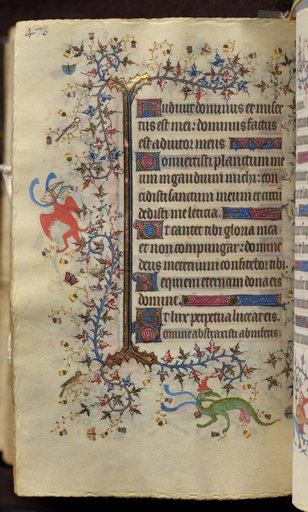 Audivit dominus et miser
tus est mei: dominus factus
est adiutor meus
Convertisti planctum me
um in gaudium michi: con
cidisti saccum meum et circū
dedisti me leticia.
Ut cantet tibi gloria mea
et non compungar: domine
deus meus in eternum confitebor tibi.
Requiem eternam dona eis
domine.
Et lux perpetua luceat eis.
Domine abstraxisti ab inferis